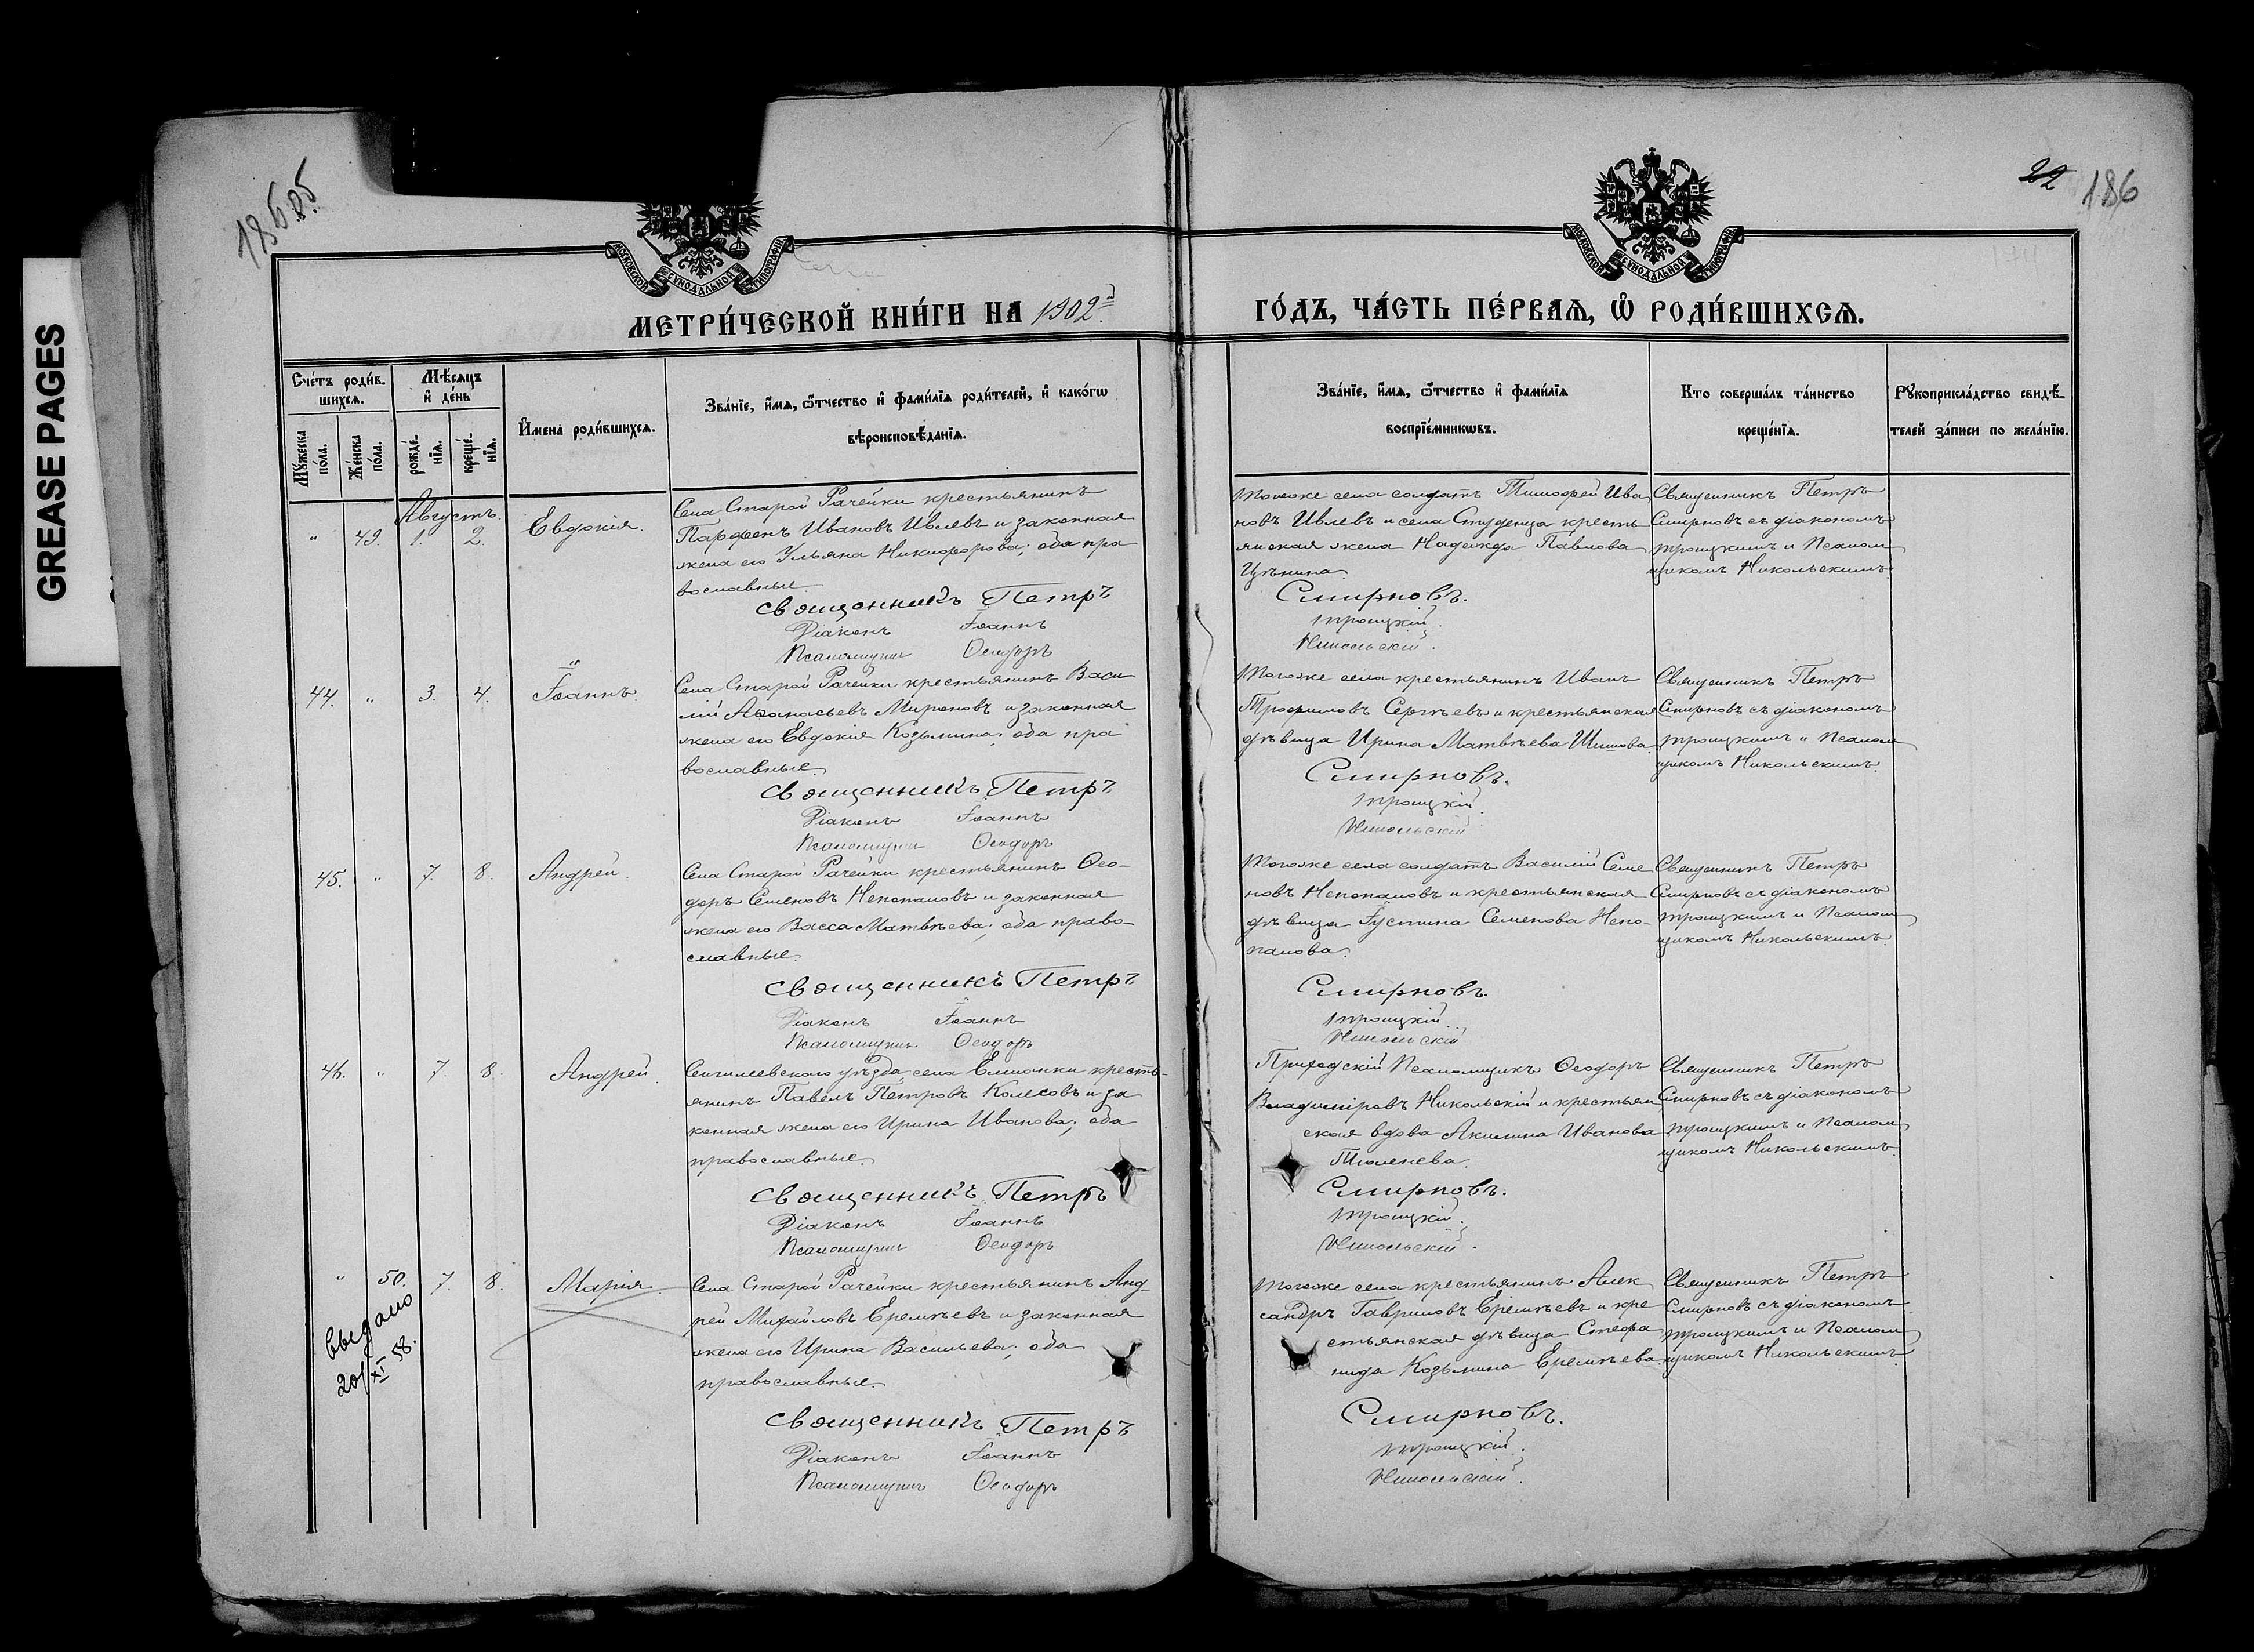 GREASE PAGES
185 об.
22 186
МОСКОВСКОЙ СѴНОДАЛЬНОЙ ТИПОГРАФІИ
МОСКОВСКОЙ СѴНОДАЛЬНОЙ ТИПОГРАФІИ
МЕТРИ́ЧЕСКОЙ КНИ́ГИ НА 1902 й
ГО́ДЪ, ЧА́СТЬ ПЕ́РВАѦ, Ѽ РОДИ́ВШИХСѦ.
Сче́тъ роди́в-
шихсѧ.
Мѣ́сяцъ
и҆ де́нь
Мꙋ́жеска
по́ла.
Же́нска
по́ла.
рожде́-
нїѧ.
креще́-
нїѧ.
И҆мена̀ роди́вшихсѧ.
Зва́нїе, и҆́мѧ, ѻ҆́тчество и҆ фами́лїѧ роди́телей, и҆ како́гѡ
вѣроисповѣ́данїѧ.
Зва́нїе, и҆́мѧ, ѻ҆́тчество и҆ фами́лїѧ
воспрїе́мникѡвъ.
Кто̀ соверша́лъ та́инство
креще́нїѧ.
Рꙋкоприкла́дство свидѣ́-
телей за́писи по жела́нїю.
Августъ.
" 49. 1. 2. Евдокія.
Села Старой Рачейки крестьянинъ
Парфенъ Ивановъ Ивлевъ и законная
жена его Ульяна Никифорова; оба пра
вославные.
Священникъ Петръ
Діаконъ Іоаннъ
Псаломщикъ Ѳеодоръ
Тогоже села солдатъ Тимофей Ива
новъ Ивлевъ и села Студенца кресть
янская жена Надежда Павлова
Смирновъ.
Троицкій.
Никольскій.
Священникъ Петръ
Смирновъ съ діакономъ
Троицкимъ и Псалом
щикомъ Никольскимъ.
44. " 3. 4. Іоаннъ.
Села Старой Рачейки крестьянинъ Васи
лій Аѳанасьевъ Мироновъ и законная
жена его Евдокия Козьмина; оба пра
вославные.
Священникъ Петръ
Діаконъ Іоаннъ
Псаломщикъ Ѳеодоръ
Тогоже села крестьянинъ Иванъ
Трофимовъ Сергѣевъ и крестьянская
дѣвица Ирина Матвѣева Шишова.
Смирновъ.
Троицкій.
Никольскій
Священникъ Петръ
Смирновъ съ діакономъ
Троицкимъ и Псалом
щикомъ Никольскимъ.
45. " 7. 8. Андрей.
Села Старой Рачейки крестьянинъ Ѳео-
доръ Семеновъ Непопаловъ и законная
жена его Васса Матвѣева; оба право-
славные.
Священникъ Петръ
Діаконъ Іоаннъ
Псаломщикъ Ѳеодоръ
Тогоже села солдатъ Василій Семе
новъ Непопаловъ и крестьянская
дѣвица Іустина Семенова Непо-
палова.
Смирновъ.
Троицкій.
Никольскій
Священникъ Петръ
Смирновъ съ діакономъ
Троицкимъ и Псалом
щикомъ Никольскимъ.
46. " 7. 8. Андрей.
Сенгилеевскаго уѣзда села Елшанки кресть-
янинъ Павелъ Петровъ Колесовъ и за
конная жена его Ирина Иванова; оба
православные.
Священникъ Петръ
Діаконъ Іоаннъ
Псаломщикъ Ѳеодоръ
Приходскій Псаломщикъ Ѳеодоръ
Владиміровъ Никольскій и крестьян
ская вдова Акилина Иванова
Тюленева.
Смирновъ.
Троицкій.
Никольскій.
Священникъ Петръ
Смирновъ съ діакономъ
Троицкимъ и Псалом
щикомъ Никольскимъ.
" 50. 7. 8. Марія.
Выдано
20/XI 58.
Села Старой Рачейки крестьянинъ Анд
рей Михайловъ Еремѣевъ и законная
жена его Ирина Васильева; оба
православные.
Священникъ Петръ
Діаконъ Іоаннъ
Псаломщикъ Ѳеодоръ
Тогоже села крестьянинъ Алек
сандръ Гавриловъ Еремѣевъ и кре
стьянская дѣвица Стефа
нида Козьмина Еремѣева.
Смирновъ.
Троицкій.
Никольскій.
Священникъ Петръ
Смирновъ съ діакономъ
Троицкимъ и Псалом
щикомъ Никольскимъ.